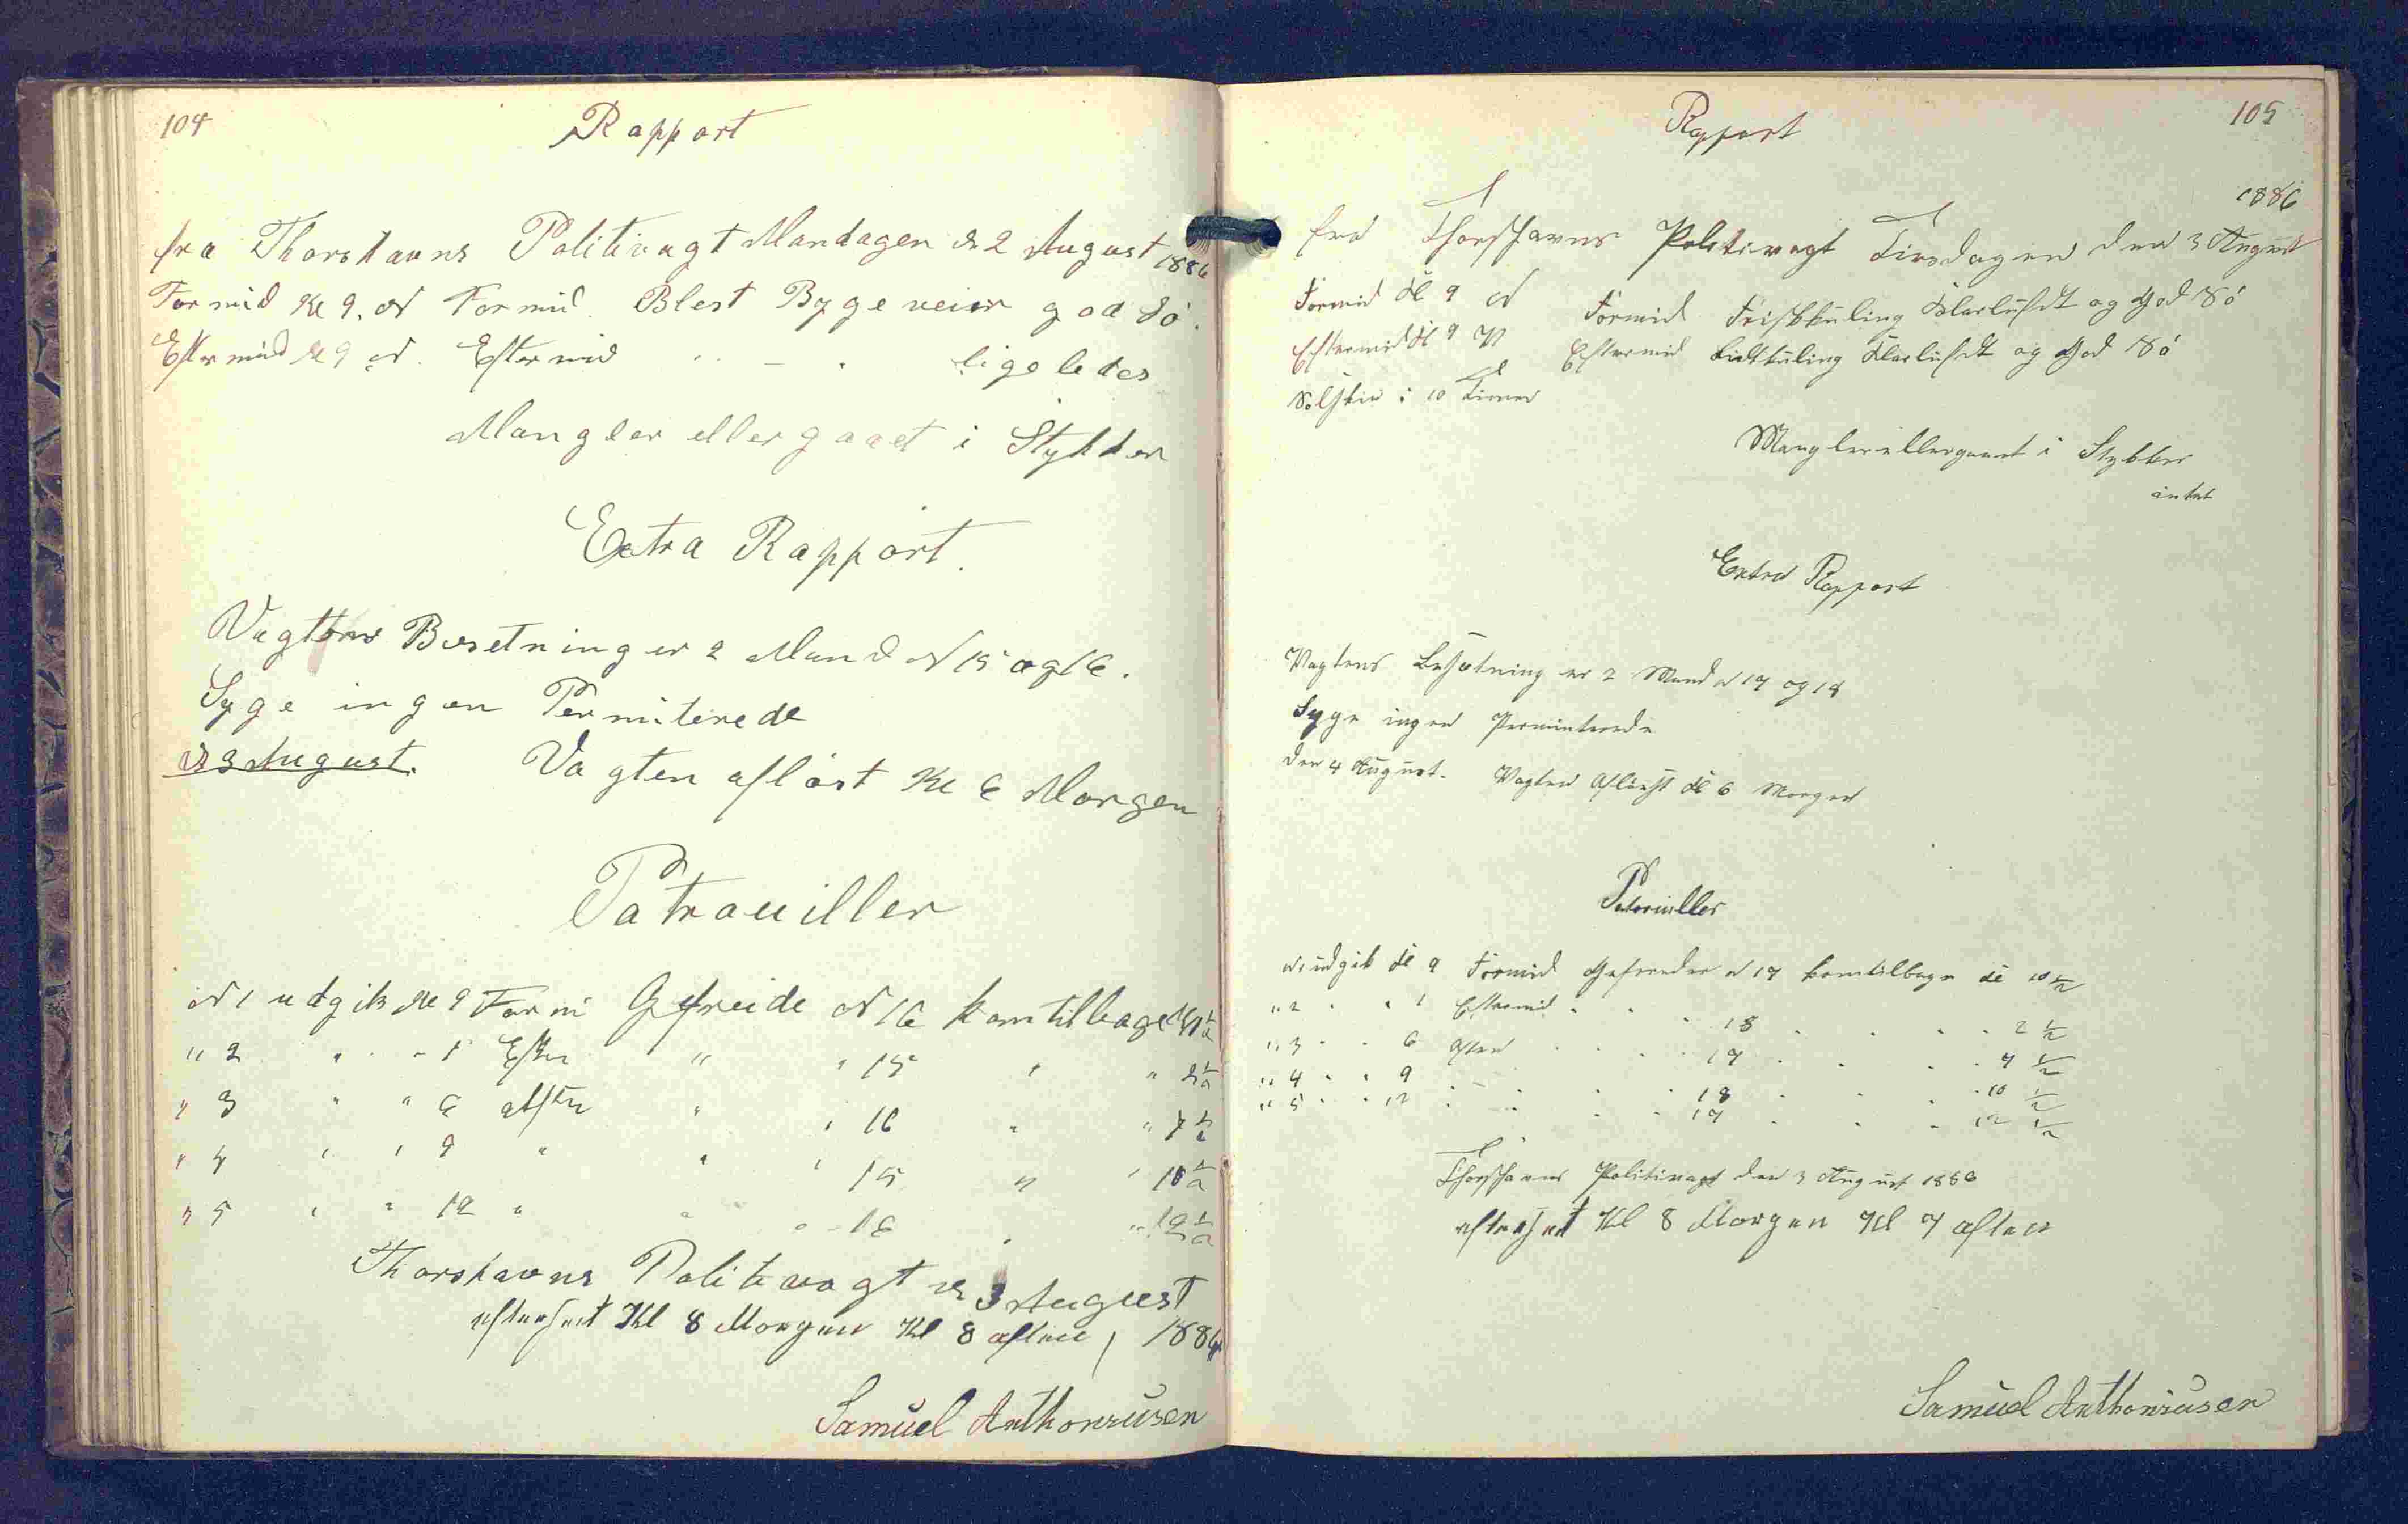 104
Rapport
fra Thorshavns Politivagt Mandagen d 2 August 1886
Formid Kl 9. N Formid. Blest Byge veier god Sö.
Eftermid Kl 9 N. Eftermid " — " ligeledes
Mangler eller gaaet i Stykker
Extra Rapport.
Vagtens Besetning er 2 Mand N 15 og 16.
Syge ingen Permiterede
d 3 August. Vagten aflöst Kl 6 Morgen
Patrouiller
N 1 udgik Kl 9 Formi Gefreide N 16 kom tilbage Kl 10 1/2
" 2 " " 1 Efter " " 15 " " 2 1/2
" 3 " " 6 Aften " " 16 " " 7 1/2
" 4 " " 9 " " " 15 " " 10 1/2
" 5 " " 12 " " " 16 " " 12 1/2
Thorshavns Politivagt d 3 August
efterset Kl 8 Morgen Kl 8 aften 1886
Samuel Anthoniusen
105
Rapport
1886
fra Thorshavns Politivagt Tirsdagen den 3 August
Formid Kl 9 N Formid Friskkuling Klarluft og God Sö
Eftermid Kl 9 N Eftermid Lidtkuling Klarluft og God Sö
Solskin i 10 Timer
Mangler eller gaaet i Stykker
intet
Extra Rapport
Vagtens Besætning er 2 Mand N 17 og 18
Syge ingen Perminterede
den 4 August. Vagten Aflöst Kl 6 Morgen
Patrouiller
N 1 udgik Kl 9 Formid Gefreeder N 17 kom tilbage Kl 10 1/2
" 2 " " 1 Eftermid " " 18 " " 2 1/2
" 3 " " 6 Aften " " 17 " " 7 1/2
" 4 " " 9 " " " 18 " " 10 1/2
" 5 " " 12 " " " 17 " " 12 1/2
Thorshavns Politivagt den 3 August 1886
efterset Kl 8 Morgen Kl 7 aften
Samuel Anthoniusen